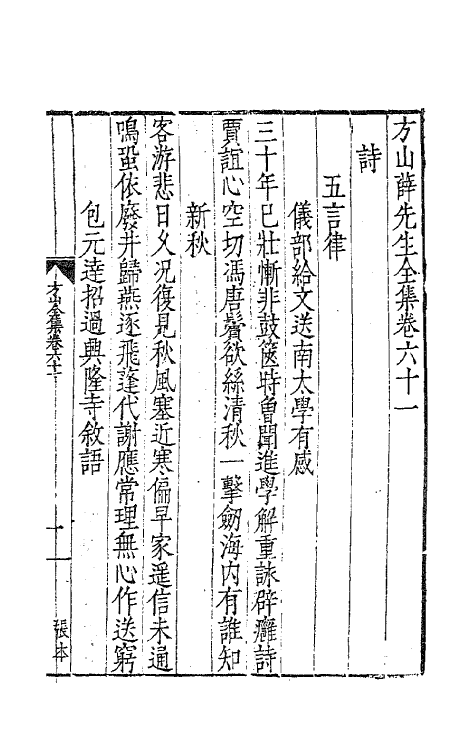 方山薛先生全集卷六十一
詩
五言律
儀部給文送南太學有感
三十年已壯慚非鼓篋時曾聞進學解重詠辟癰詩
賈誼心空切馮唐鬢欲絲清秋一擊劒海内有誰知
新秋
客游悲日久况復見秋風塞近寒偏早家遥信未通
鳴蛩依廢井歸燕逐飛蓬代謝應常理無心作送窮
包元逹招過興隆寺敘語
方山全集卷六十一
一
張本